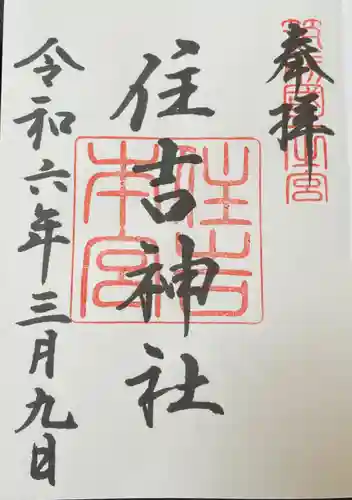 奉拝
住吉神社
令和六年三月九日
住吉
本宮